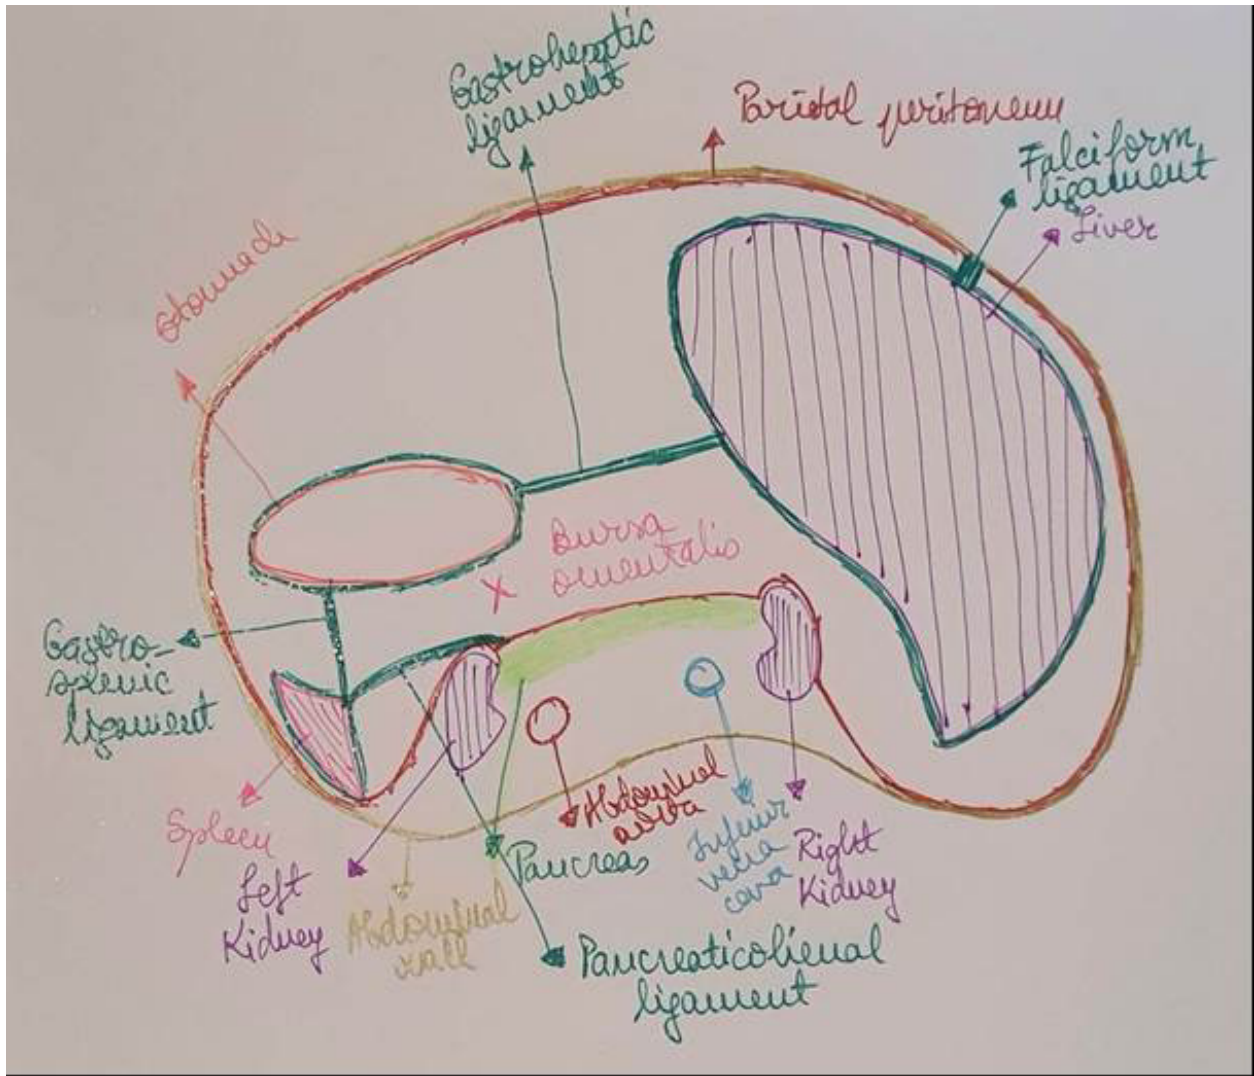 Gastrohepatic
ligament
Parietal peritoneum
Falciform
ligament
Liver
Stomach
Bursa
omentalis
X
Gastro-
splenic
ligament
Spleen
Left
Kidney
Abdominal
wall
Pancreas
Abdominal
aorta
Inferior
vena
cava
Right
Kidney
Pancreaticolienal
ligament